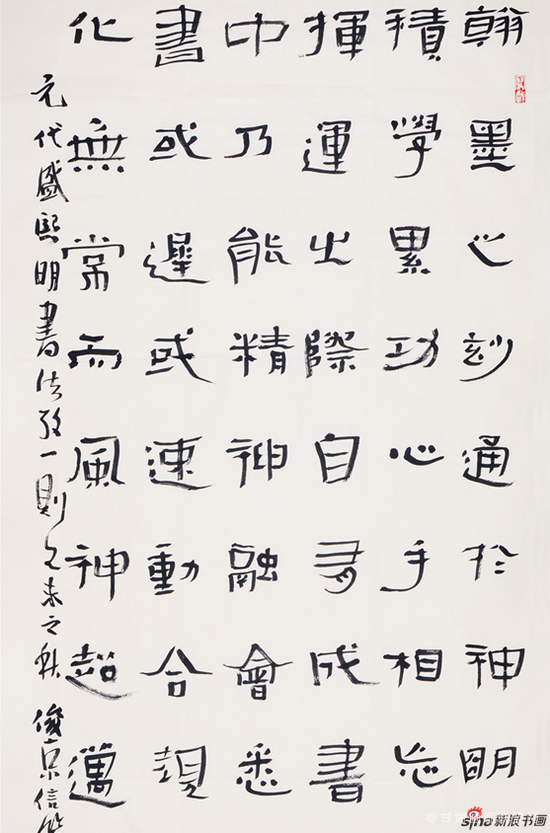 翰墨之妙通於神明
積學累功心手相忘
揮運之際自有成書
中乃能精神融會悉
書或遲或速動合規
化無常而風神超邁
元代盛熙明書法考一則乙未之秋俊京信筆
sina新浪书画